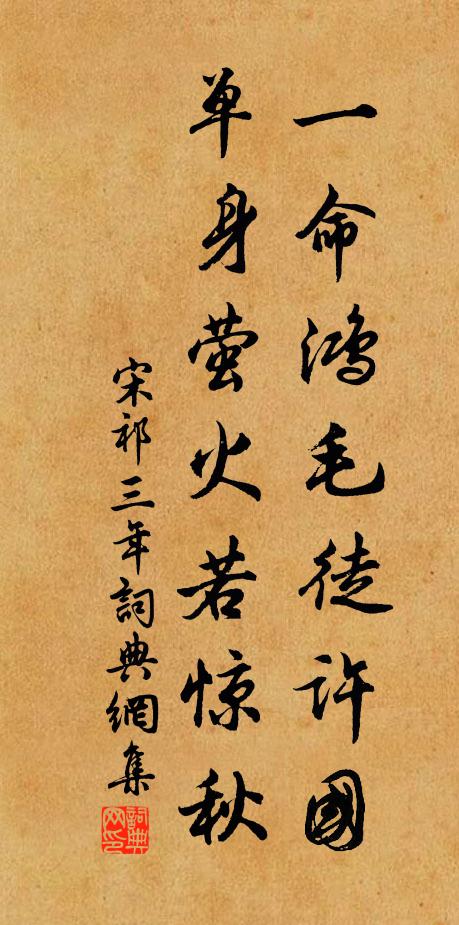 一命鸿毛徒许國
单身萤火若惊秋
宋祁三年詞典網集
詞典网印